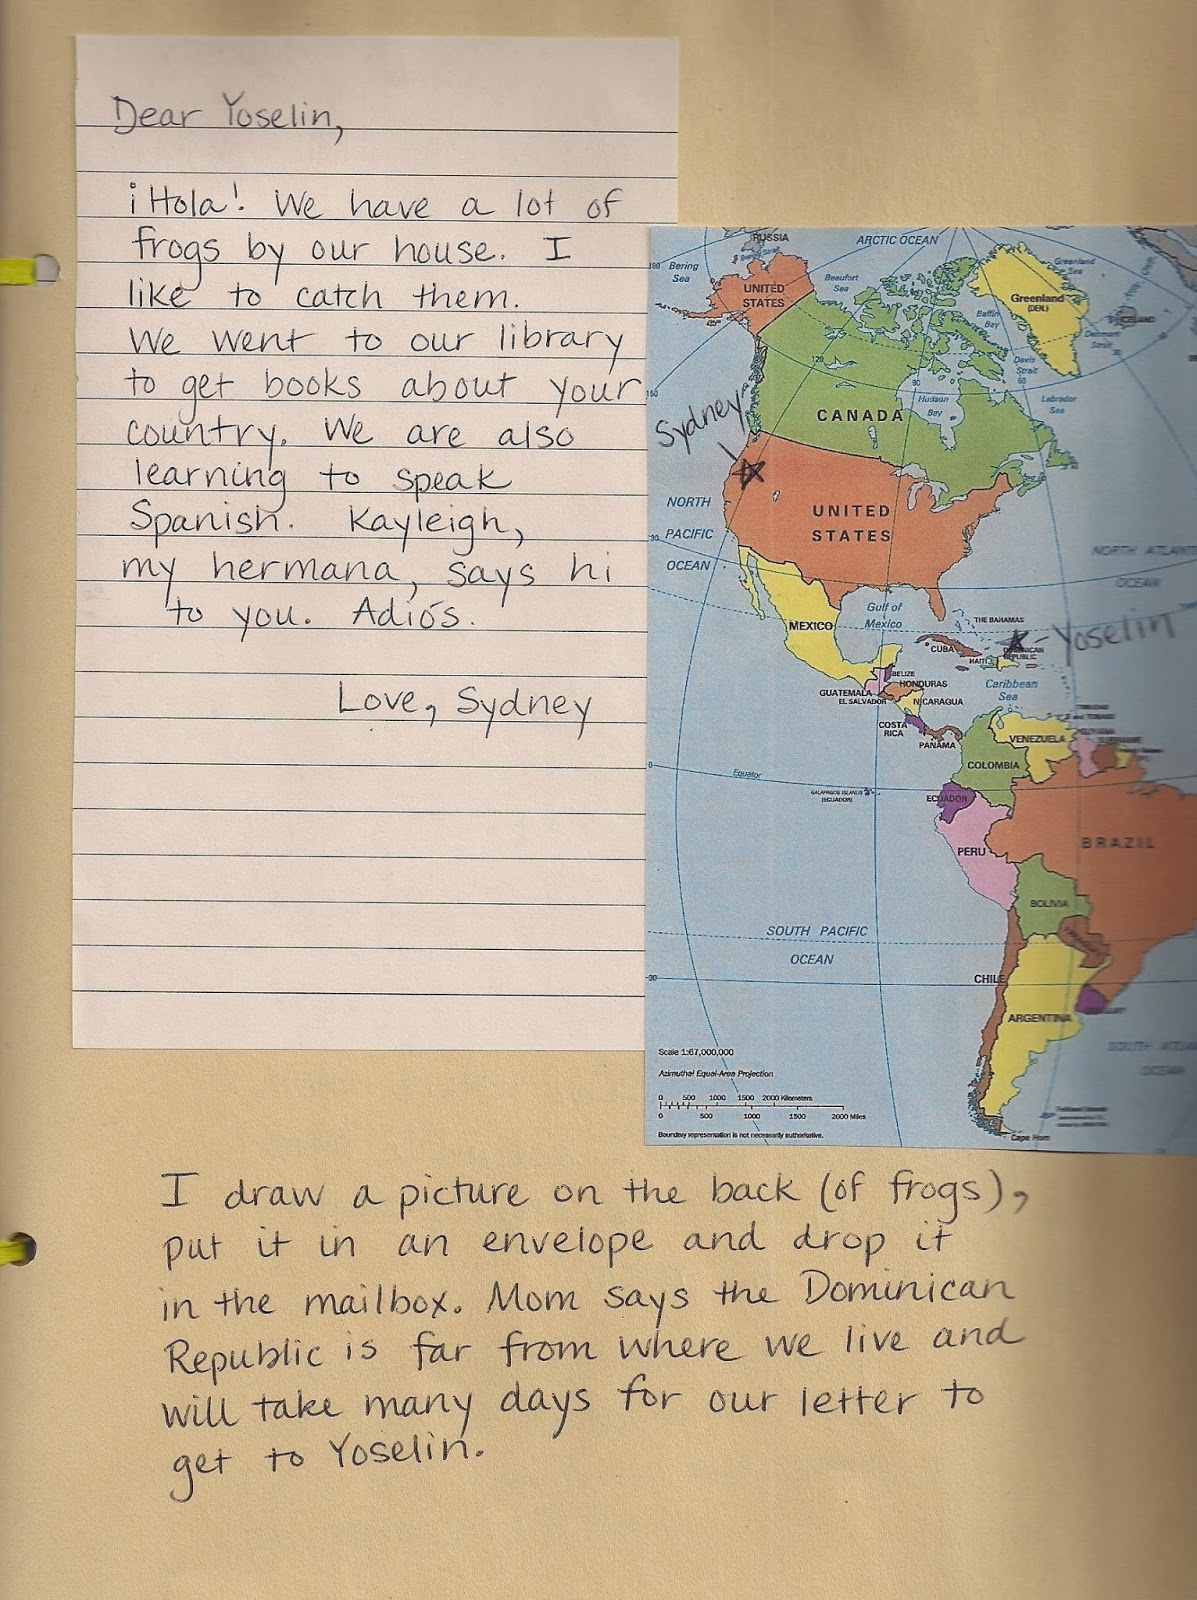 Dear Yoselin,
¡Hola! We have a lot of
frogs by our house. I
like to catch them.
We went to our library
to get books about your
country. We are also
learning to speak
Spanish. Kayleigh,
my hermana, says hi
to you. Adiós.
Love, Sydney
RUSSIA
ARCTIC OCEAN
Bering
Sea
Beaufort
Sea
Greenland
Sea
180
UNITED
STATES
Greenland
(DEN.)
ICELAND
Baffin
Bay
Denmark
Strait
Davis
Strait
120
90
60
150
Hudson
Bay
Labrador
Sea
CANADA
Sydney
NORTH
PACIFIC
OCEAN
30
UNITED
STATES
NORTH ATLANTIC
OCEAN
Gulf of
Mexico
THE BAHAMAS
MEXICO
CUBA
HAITI
DOMINICAN
REPUBLIC
Yoselin
BELIZE
HONDURAS
GUATEMALA
EL SALVADOR
NICARAGUA
Caribbean
Sea
COSTA
RICA
PANAMA
TRINIDAD
and TOBAGO
VENEZUELA
GUYANA
SURINAME
COLOMBIA
0
Equator
GALAPAGOS ISLANDS
(ECUADOR)
ECUADOR
PERU
BRAZIL
BOLIVIA
PARAGUAY
SOUTH PACIFIC
OCEAN
30
CHILE
ARGENTINA
URUGUAY
SOUTH ATLA
OCEAN
Cape Horn
Scale 1:67,000,000
Azimuthal Equal-Area Projection
0 500 1000 1500 2000 Kilometers
0 500 1000 1500 2000 Miles
Boundary representation is not necessarily authoritative.
I draw a picture on the back (of frogs),
put it in an envelope and drop it
in the mailbox. Mom says the Dominican
Republic is far from where we live and
will take many days for our letter to
get to Yoselin.